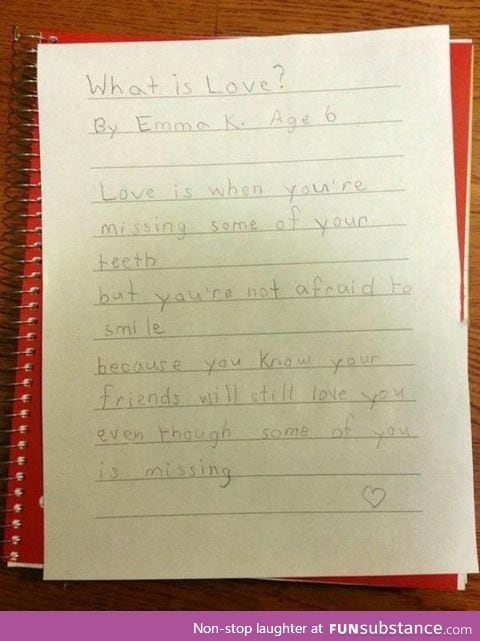 What is Love?
By Emma K. Age 6
Love is when you're
missing some of your
teeth
but you're not afraid to
smile
because you know your
friends will still love you
even though some of you
is missing
Non-stop laughter at FUNsubstance.com